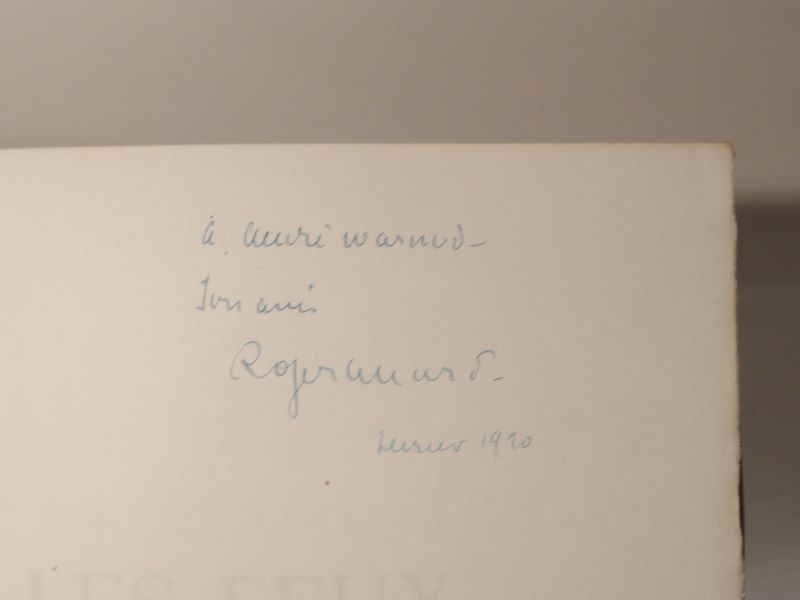 à André Warnod
son ami
Roger Allard
février 1920
LES FEUX